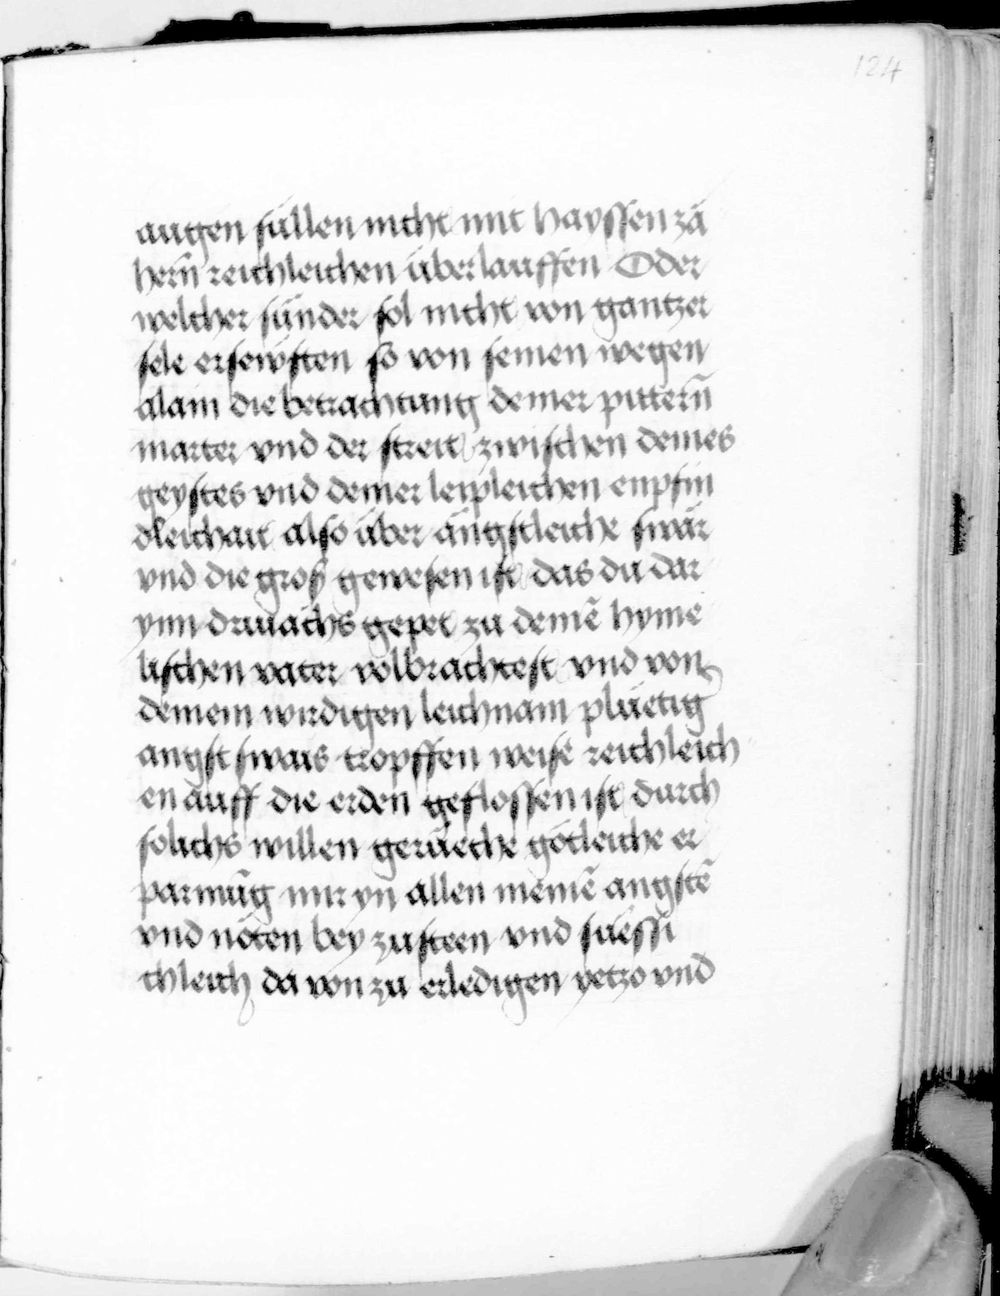 124
augen süllen nicht mit hayssen zä
hern̄ reichleichen überlauffen Oder
welcher sünder sol nicht von gantzer
sele ersewften so von seinen wegen
alain die betrachtung deiner pittern̄
marter vnd der streit zwischen deines
geystes vnd deiner leipleichen enpfin
dleichait also über ängstleiche swär
vnd die gross gewesen ist das du dar
ynn drivachs gepet zu deinē hyme
lischen vater volbrachtest vnd von
deinem wirdigen leichnam plüetig
angst swais tropffen weise reichleich
en auff die erden geflossen ist durch
solichs willen gerüeche götleiche er
parmūg mir yn allen meinē angstē
vnd nöten bey zusteen vnd süessi
chleich da von zu erledigen yetzo vnd